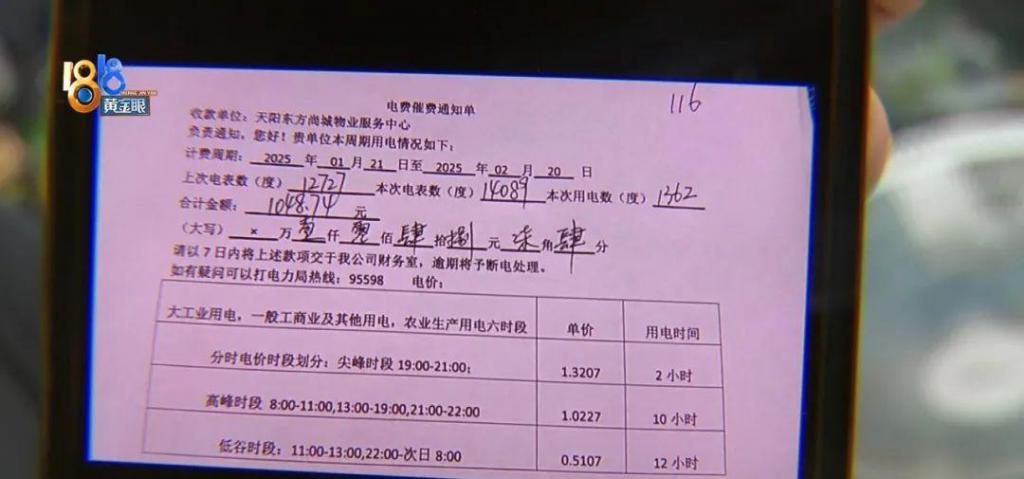 1818
黄金眼
116
电费催费通知单
收款单位：天阳东方尚城物业服务中心
负责通知，您好！贵单位本周期用电情况如下：
计费周期： 2025 年 01 月 21 日至 2025 年 02 月 20 日
上次电表数（度） 12727 本次电表数（度） 14089 本次用电数（度） 1362
合计金额： 1048.74 元
（大写） × 万 壹 仟 零 佰 肆 拾 捌 元 柒 角 肆 分
请以 7 日内将上述款项交于我公司财务室，逾期将予断电处理。
如有疑问可以打电力局热线：95598 电价：
大工业用电，一般工商业及其他用电，农业生产用电六时段 单价 用电时间
分时电价时段划分：尖峰时段 19:00-21:00; 1.3207 2 小时
高峰时段 8:00-11:00,13:00-19:00,21:00-22:00 1.0227 10 小时
低谷时段：11:00-13:00,22:00-次日 8:00 0.5107 12 小时